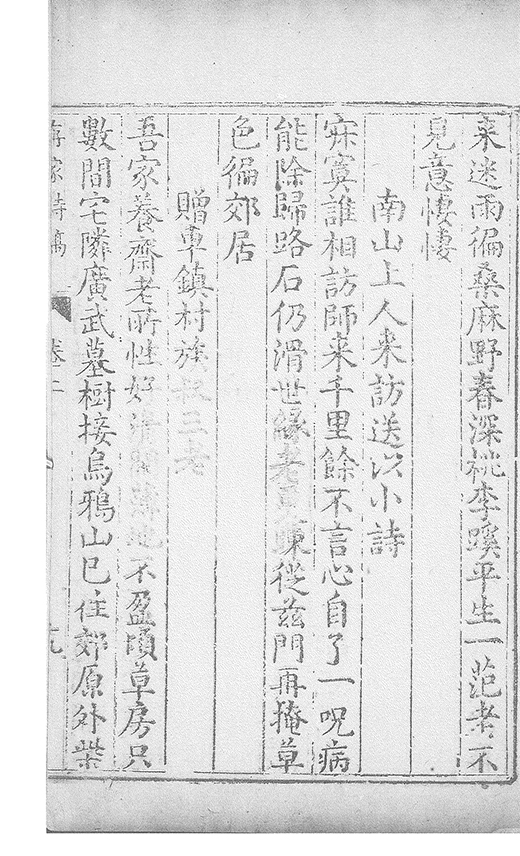 來迷雨徧桑麻野春深桃李蹊平生一范老不
見意悽悽
南山上人来訪送以小詩
寂寞誰相訪師来千里餘不言心自了一呪病
能除歸路石仍滑世緣老更踈從茲門再掩草
色徧郊居
贈車鎮村族叔三老
吾家養齋老所性好清閒薄地不盈頃草房只
數間宅隣廣武墓樹接烏鴉山已住郊原外柴
詩稿 卷二